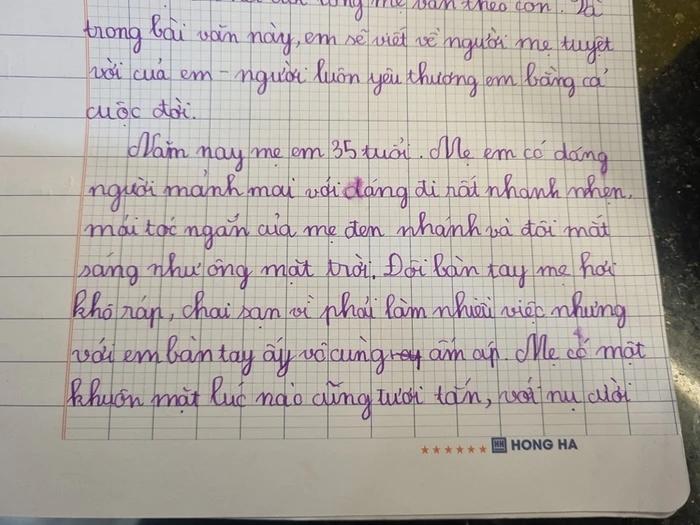 mẹ vẫn theo con. Và
trong bài văn này, em sẽ viết về người mẹ tuyệt
vời của em - người luôn yêu thương em bằng cả
cuộc đời.
Năm nay mẹ em 35 tuổi. Mẹ em có dáng
người mảnh mai với dáng đi rất nhanh nhẹn,
mái tóc ngắn của mẹ đen nhánh và đôi mắt
sáng như ông mặt trời. Đôi bàn tay mẹ hơi
khô ráp, chai sạn vì phải làm nhiều việc nhưng
với em bàn tay ấy vô cùng ấm áp. Mẹ có một
khuôn mặt lúc nào cũng tươi tắn, với nụ cười
HH HONG HA